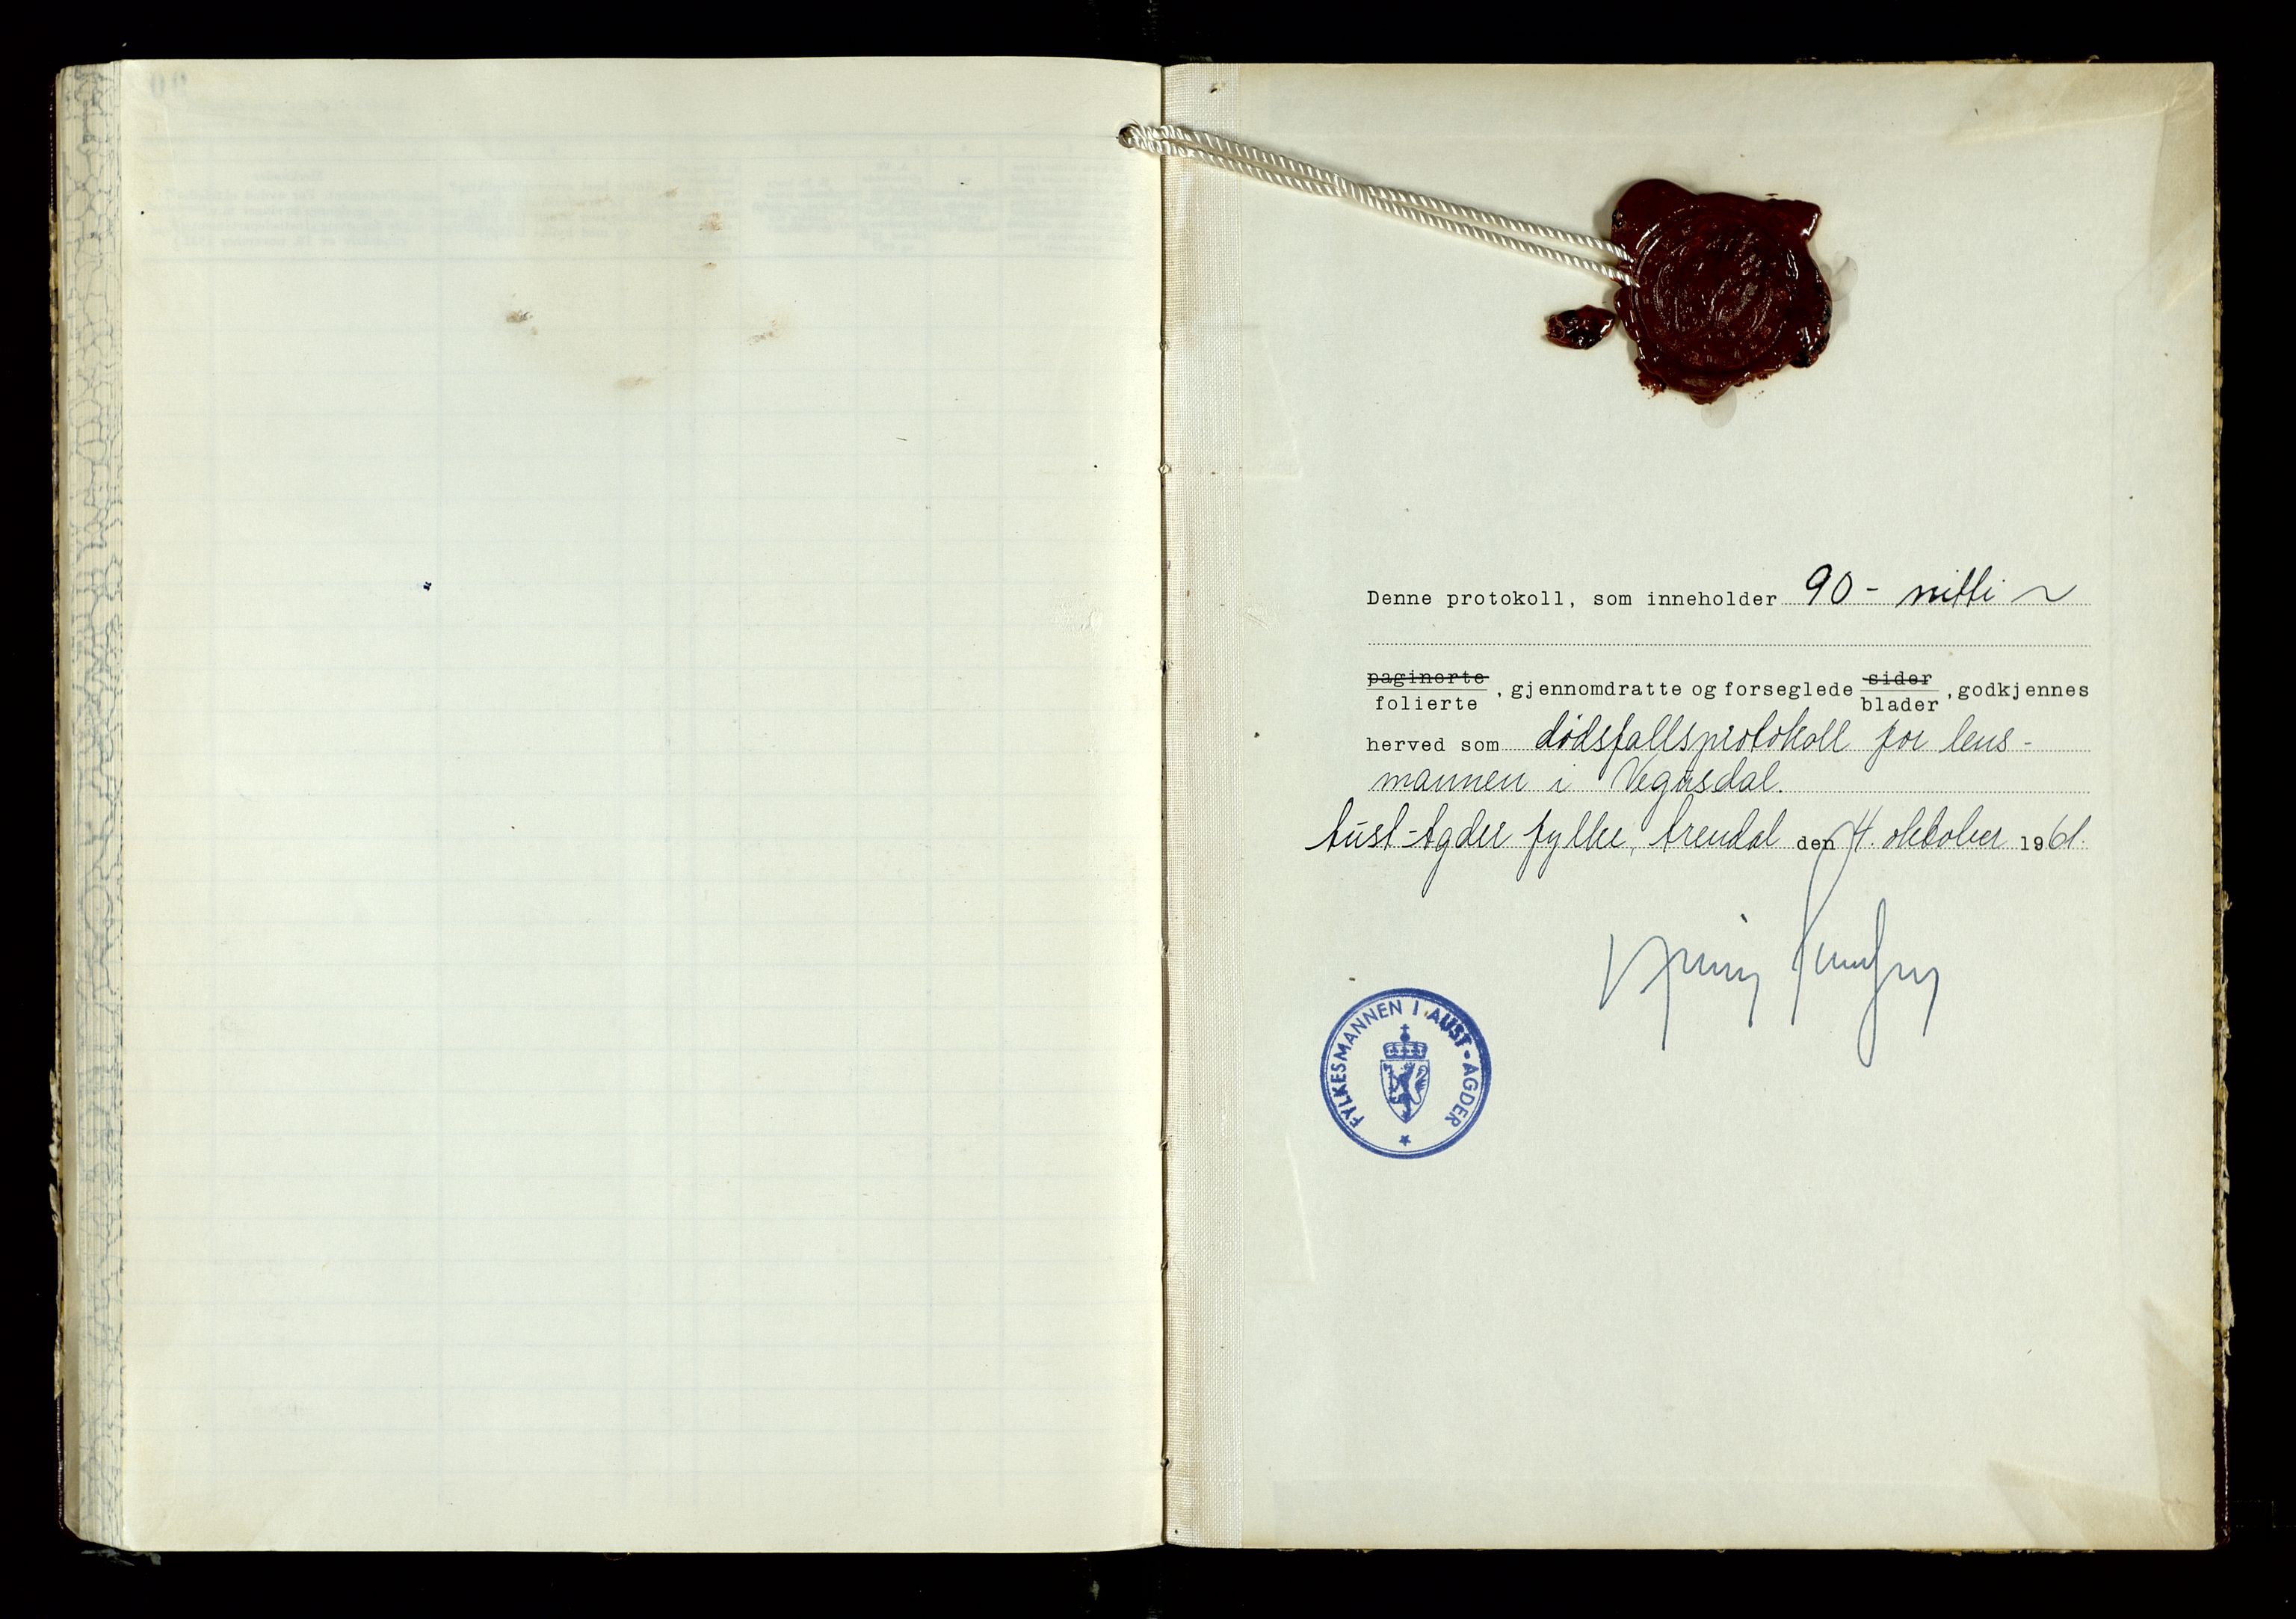 Denne protokoll, som inneholder 90 - nitti ~
paginerte
folierte , gjennomdratte og forseglede sider
blader , godkjennes
herved som dødsfallsprotokoll for lens-
mannen i Vegusdal.
Aust-Agder fylke, Arendal den 4. oktober 1961.
FYLKESMANNEN I AUST-AGDER